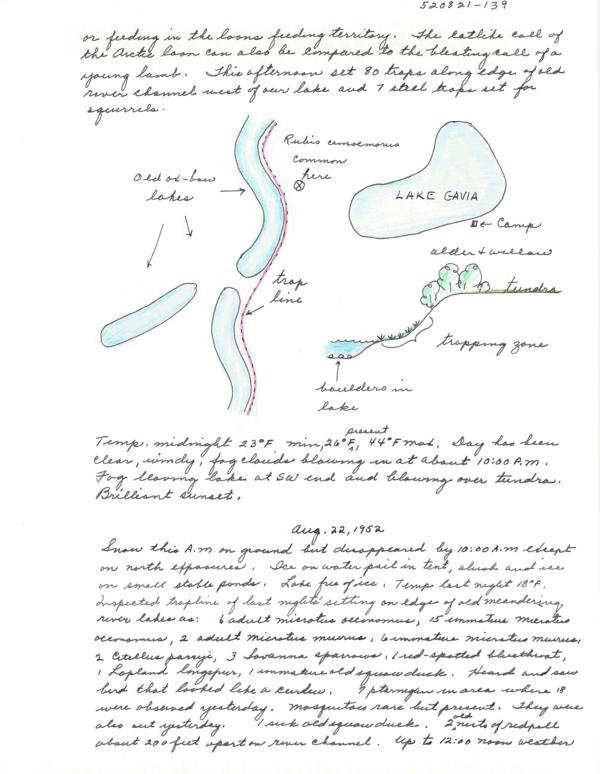 520821-139
or feeding in the loons feeding territory. The catlike call of
the Arctic loon can also be compared to the bleating call of a
young lamb. This afternoon set 80 traps along edge of old
river channel west of our lake and 7 steel traps set for
squirrels.
Rubis camoemorus
common
here
Old ox-bow
lakes
LAKE GAVIA
← Camp
alder + willow
tundra
trap
line
trapping zone
boulders in
lake
present
Temp. midnight 23°F min, 26°F, 44°F max. Day has been
clear, windy, fog clouds blowing in at about 10:00 P.M.
Fog leaving lake at SW end and blowing over tundra.
Brilliant sunset.
Aug. 22, 1952
Snow this A.M on ground but disappeared by 10:00 A.M except
on north exposures. Ice on water pail in tent, slush and ice
on small stable ponds. Lake free of ice. Temp last night 18°F.
Inspected trapline of last nights' setting on edge of old meandering
river lakes as: 6 adult microtus oeconomus, 15 immature microtus
oeconomus, 2 adult microtus muirus, 6 immature microtus muirus,
2 Citellus parryi, 3 Savanna sparrows, 1 red-spotted bluethroat,
1 Lapland longspur, 1 immature old squaw duck. Heard and saw
bird that looked like a curlew. 7 ptarmigan in area where 18
were observed yesterday. Mosquitoes rare but present. They were
also out yesterday. 1 sick old squaw duck. 2 old nests of redpoll
about 200 feet apart on river channel. Up to 12:00 noon weather